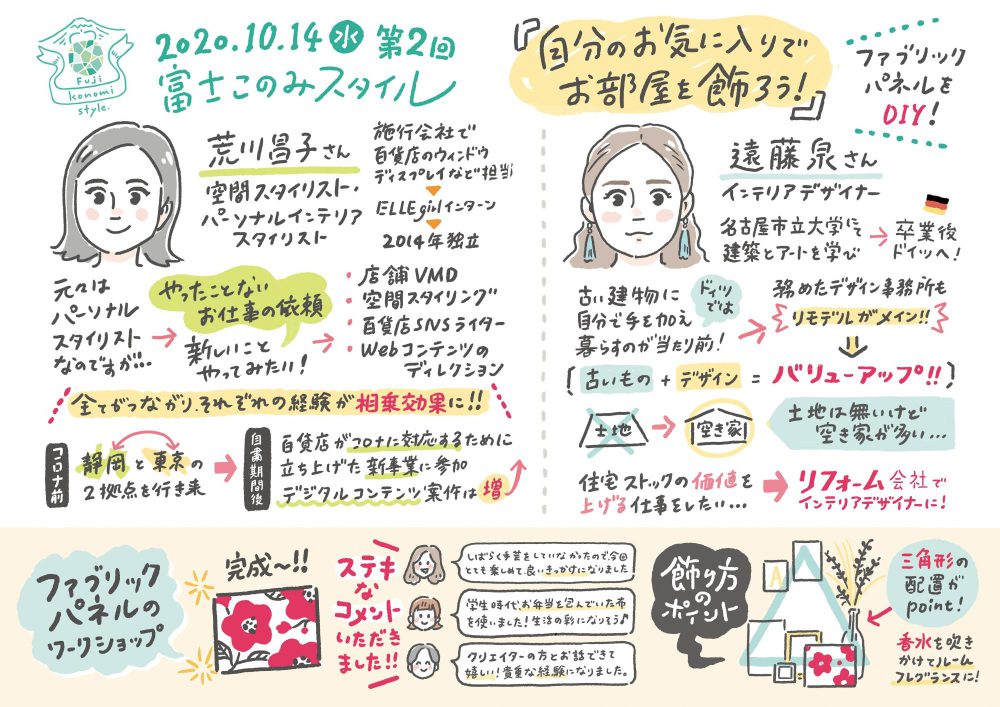 Fuji
Konomi
style.
2020.10.14 水 第2回
富士このみスタイル
『自分のお気に入りで
お部屋を飾ろう!』
ファブリック
パネルを
DIY!
荒川昌子さん
空間スタイリスト・
パーソナルインテリア
スタイリスト
施行会社で
百貨店のウィンドウ
ディスプレイなど担当
ELLE girlインターン
2014年独立
元々は
パーソナル
スタイリスト
なのですが…
やったことない
お仕事の依頼
新しいこと
やってみたい!
・店舗VMD
・空間スタイリング
・百貨店SNSライター
・Webコンテンツの
ディレクション
全てがつながり、それぞれの経験が相乗効果に!!
コロナ前
静岡と東京の
2拠点を行き来
自粛期間後
百貨店がコロナに対応するために
立ち上げた新事業に参加
デジタルコンテンツ案件は増
遠藤泉さん
インテリアデザイナー
名古屋市立大学にて
建築とアートを学び
卒業後
ドイツへ!
古い建物に
自分で手を加え
暮らすのが当たり前!
ドイツ
では
務めたデザイン事務所も
リモデルがメイン!!
古いもの + デザイン = バリューアップ!!
土地
空き家
土地は無いけど
空き家が多い…
住宅ストックの価値を
上げる仕事をしたい…
リフォーム会社で
インテリアデザイナーに!
ファブリック
パネルの
ワークショップ
完成〜!!
ステキ
な
コメント
いただき
ました!!
しばらく手芸をしていなかったので今回
とても楽しめて良いきっかけになりました
学生時代、お弁当を包んでいた布
を使いました!生活の彩になりそう♪
クリエイターの方とお話できて
嬉しい!貴重な経験になりました。
飾り方
の
ポイント
A
三角形の
配置が
point!
香水を吹き
かけてルーム
フレグランスに!